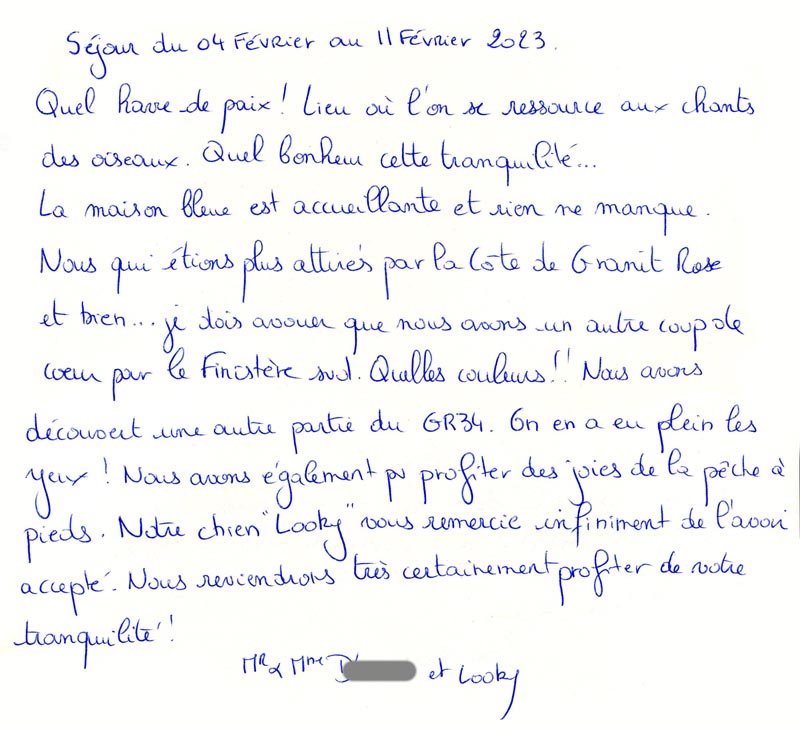 Séjour du 04 Février au 11 Février 2023.
Quel havre de paix! Lieu où l'on se ressource aux chants
des oiseaux. Quel bonheur cette tranquilité...
La maison bleue est accueillante et rien ne manque.
Nous qui étions plus attirés par la Côte de Granit Rose
et bien... je dois avouer que nous avons un autre coup de
coeur pour le Finistère sud. Quelles couleurs!! Nous avons
découvert une autre partie du GR34. On en a eu plein les
yeux! Nous avons également pu profiter des joies de la pêche à
pieds. Notre chien "Looky" vous remercie infiniment de l'avoir
accepté. Nous reviendrons très certainement profiter de votre
tranquilité!
Mr & Mme D' et Looky